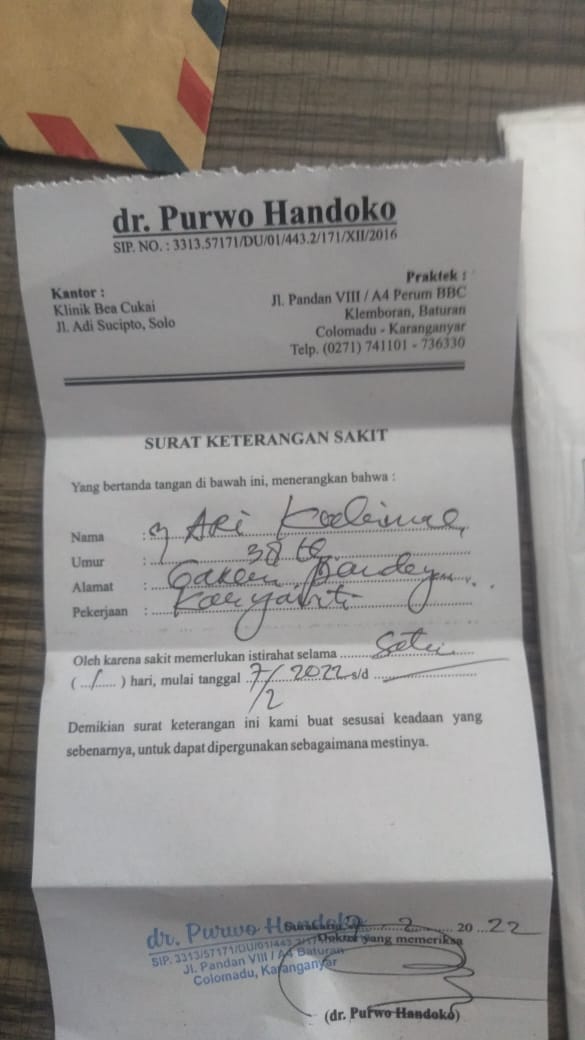 dr. Purwo Handoko
SIP. NO. : 3313.57171/DU/01/443.2/171/XII/2016
Kantor :
Klinik Bea Cukai
Jl. Adi Sucipto, Solo
Praktek :
Jl. Pandan VIII / A4 Perum BBC
Klemboran, Baturan
Colomadu - Karanganyar
Telp. (0271) 741101 - 736330
SURAT KETERANGAN SAKIT
Yang bertanda tangan di bawah ini, menerangkan bahwa :
Nama : Ari
Umur : 38
Alamat :
Pekerjaan :
Oleh karena sakit memerlukan istirahat selama
( ...1... ) hari, mulai tanggal 7/2 2022 s/d
Demikian surat keterangan ini kami buat sesusai keadaan yang
sebenarnya, untuk dapat dipergunakan sebagaimana mestinya.
7 - 2 20 22
Dokter yang memeriksa
dr. Purwo Handoko
SIP. 3313/57171/DU/01/443.2/
Jl. Pandan VIII / A4 Baturan
Colomadu, Karanganyar
(dr. Purwo Handoko)